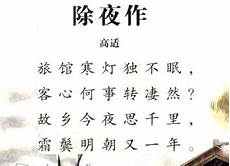 除夜作
高适
旅馆寒灯独不眠，
客心何事转凄然？
故乡今夜思千里，
霜鬓明朝又一年。